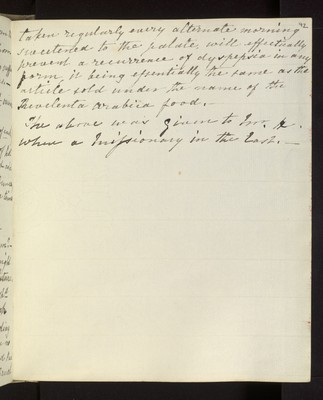 taken regularly every alternate morning
sweetened to the palate, will effectually
prevent a recurrence of dyspepsia in any
form, it being essentially the same as the
article sold under the name of the
Revelenta Arabica food. —
The above was given to Jno.
when a Missionary in the East. —